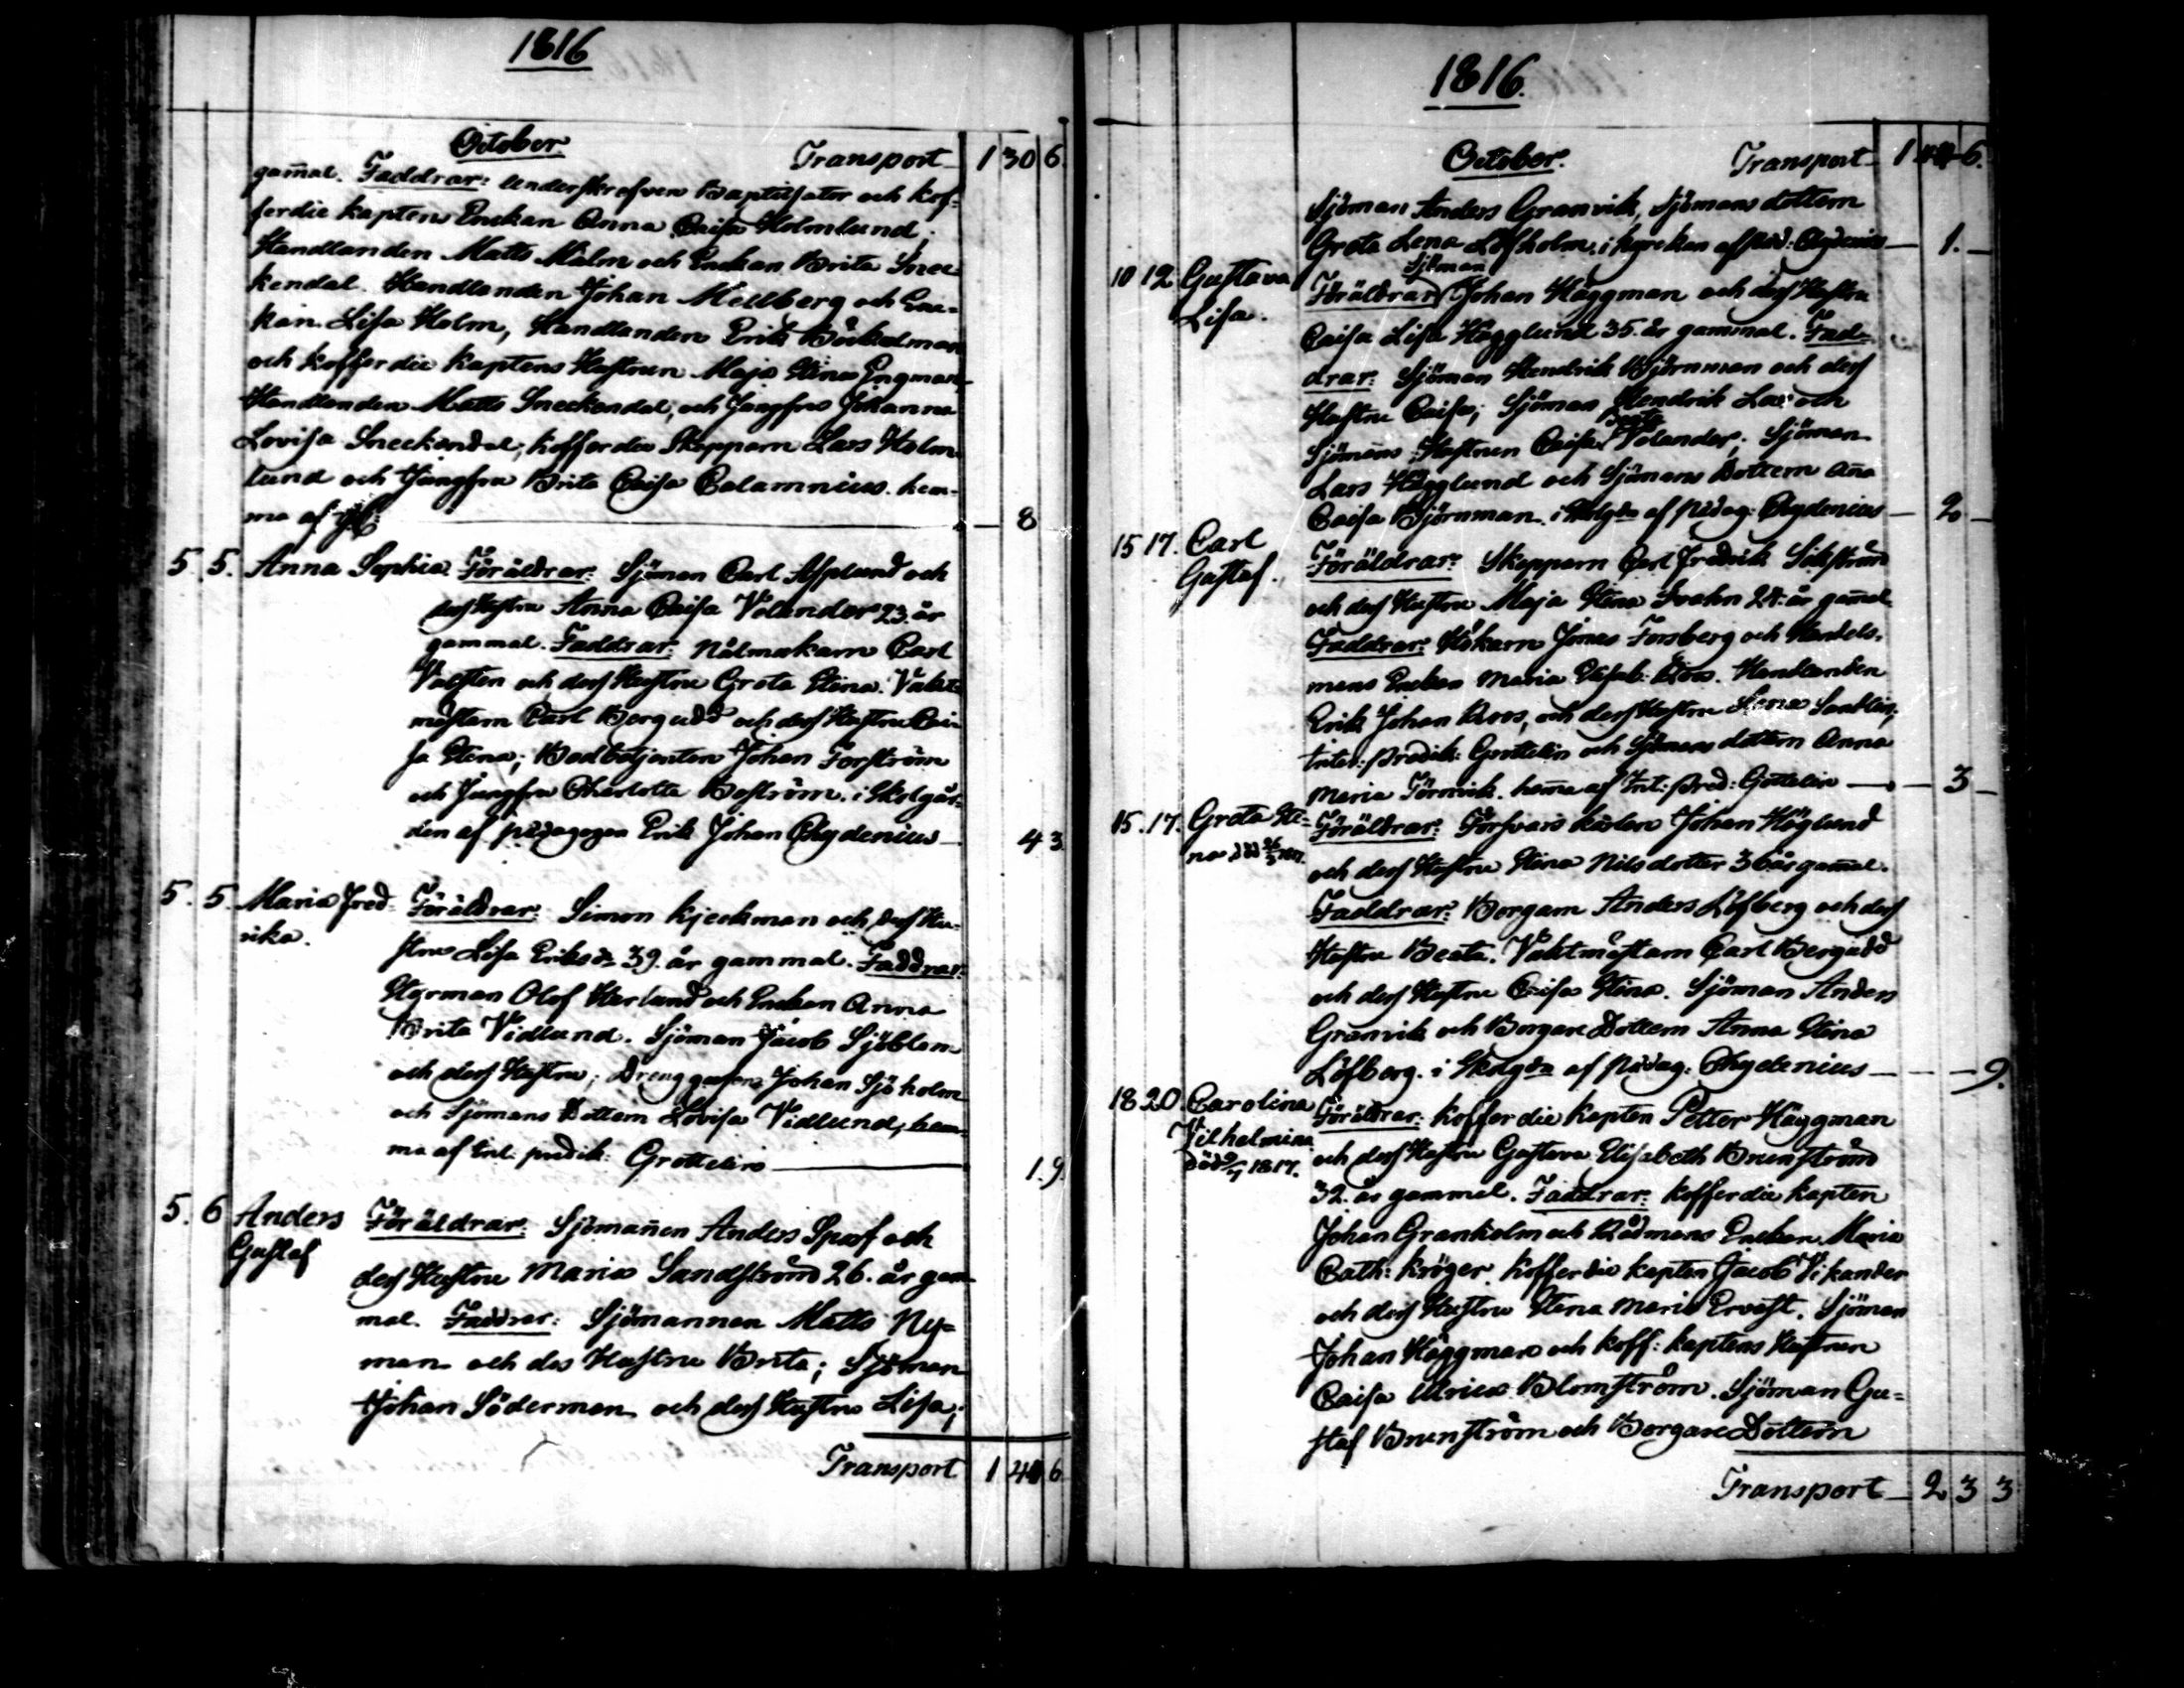 1816
October. Transport 1 30 6
gam̄al. Faddrar: Underskrefven Baptisator och kof-
ferdie kaptens Enckan Anna Caisa Holmlund;
Handlanden Matts Malm och Enckan Brita Snec
kendal. Handlanden Johan Mellberg och Enc-
kan Lisa Holm, Handlanden Erik Böckelman
och kofferdie kaptens Hustrun Maja Stina Engman,
Handlanden Matts Sneckendal, och Jungfru Johanna
Lovisa Sneckendal; kofferdie Skepparn Lars Holm
lund och Jungfru Brita Caisa Calamnius. hem-
ma af 8
5. 5. Anna Sophia. Föräldrar: Sjöman Carl Asplund och
dess Hustru Anna Caisa Velander 23. år
gammal. Faddrar: Nålmakarn Carl
Valsten och dess Hustru Greta Stina. Vakt
mästarn Carl Bergudd och dess Hustru Cai-
sa Stina; Bodbetjenten Johan Forsström
och Jungfru Charlotta Boström. i Skolgår-
den af pædagogen Erik Johan Chydenius 4 3
5. 5. Maria Fred- Föräldrar: Simon Kjeckman och dess Hu-
rika. stru Lisa Eriksdr 39. år gammal. Faddrar:
Styrman Olof Herlund och Enckan Anna
Brita Vidlund. Sjöman Jacob Sjöblom
och dess Hustru; Drenggossen Johan Sjöholm
och Sjömans Dottern Lovisa Vidlund; hem-
ma af Int. predik: Grottelin 1. 9.
5. 6 Anders Föräldrar: Sjöman̄en Anders Spoof och
Gustaf dess Hustru Maria Sandström 26. år gam-
mal. Faddrar: Sjömannen Matts Ny-
man och des Hustru Brita; Sjöman
Johan Söderman och dess Hustru Lisa;
Transport 1 44 6
1816.
October. Transport 1 44 6.
Sjöman Anders Granvik, Sjömans dottern
Greta Lena Löfholm. i kyrckan af pæd: Chydenius 1.
10 12 Gustava Föräldrar: Sjöman Johan Häggman och dess Hustru
Lisa. Caisa Lisa Hägglund 35. år gammal. Fad-
drar: Sjöman Hendrik Björnman och dess
Hustru Caisa; Sjöman Hendrik Lax och
Sjömans Hustrun Caisa Velander; Sjöman
Lars Hägglund och Sjömans Dottern An̄a
Caisa Björnman. i Skolgdn af pædag. Chydenius 2
15 17. Carl Föräldrar: Skepparn Carl Fredrik Sikström
Gustaf. och dess Hustru Maja Stina Svahn 24. år gam̄al
Faddrar: Hökarn Jonas Forsberg och Handels-
mans Enckan Maria Elisab: Roos. Handlanden
Erik Johan Roos, och dess Hustru Lena
Inter: predik: Grottelin och Sjömans dottern Anna
Maria Törnvik. hem̄a af Int: pred: Gottelin 3
15. 17. Greta Sti- Föräldrar: Försvars karlen Johan Höglund
na död 1817. och dess Hustru Stina Nilsdotter 36 år gam̄al.
Faddrar: Borgarn Anders Löfberg och dess
Hustru Beata. Vaktmästarn Carl Bergudd
och dess Hustru Caisa Stina. Sjöman Anders
Granvik och Borgare Dottern Anna Stina
Löfberg. i Skolgdn af pædag: Chydenius 9.
18 20 Carolina Föräldrar: kofferdie kapten Petter Häggman
Vilhelmina och dess Hustru Gustava Elisabeth Brunström
död 1817. 32. år gammal. Faddrar: kofferdie kapten
Johan Granholm och Rådmans Enckan Maria
Cath: Kröger. kofferdie kapten Jacob Vikander
och dess Hustru Stina Maria Ervast. Sjöman
Johan Häggman och koff: kaptens Hustrun
Caisa Ulrica Blomström. Sjöman Gu-
staf Brunström och Borgare Dottern
Transport 2 3 3